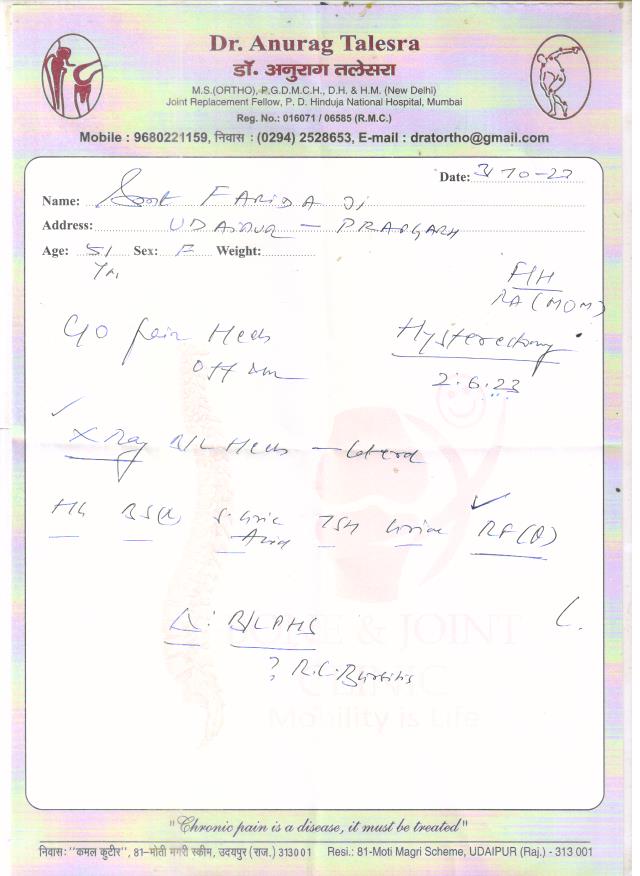 Dr. Anurag Talesra
डॉ. अनुराग तलेसरा
M.S.(ORTHO), P.G.D.M.C.H., D.H. & H.M. (New Delhi)
Joint Replacement Fellow, P. D. Hinduja National Hospital, Mumbai
Reg. No.: 016071 / 06585 (R.M.C.)
Mobile : 9680221159, निवास : (0294) 2528653, E-mail : dratortho@gmail.com
Date: 3/10-23
Name: Smt FARIDA Ji
Address: UDAIPUR -
Age: 51 Yr. Sex: F Weight:
F/H
RA (MOM)
C/O Pain Heels
Hysterectomy
Off
2.6.23
X Ray B/L Heels - lateral
Hb BS(R) S. Uric Acid TSH Urine RF (Q)
Δ: B/L PHS
? R.C. Bursitis
BONE & JOINT
CLINIC
Mobility is Life
"Chronic pain is a disease, it must be treated"
निवास : "कमल कुटीर", 81-मोती मगरी स्कीम, उदयपुर (राज.) 313001 Resi.: 81-Moti Magri Scheme, UDAIPUR (Raj.) - 313 001